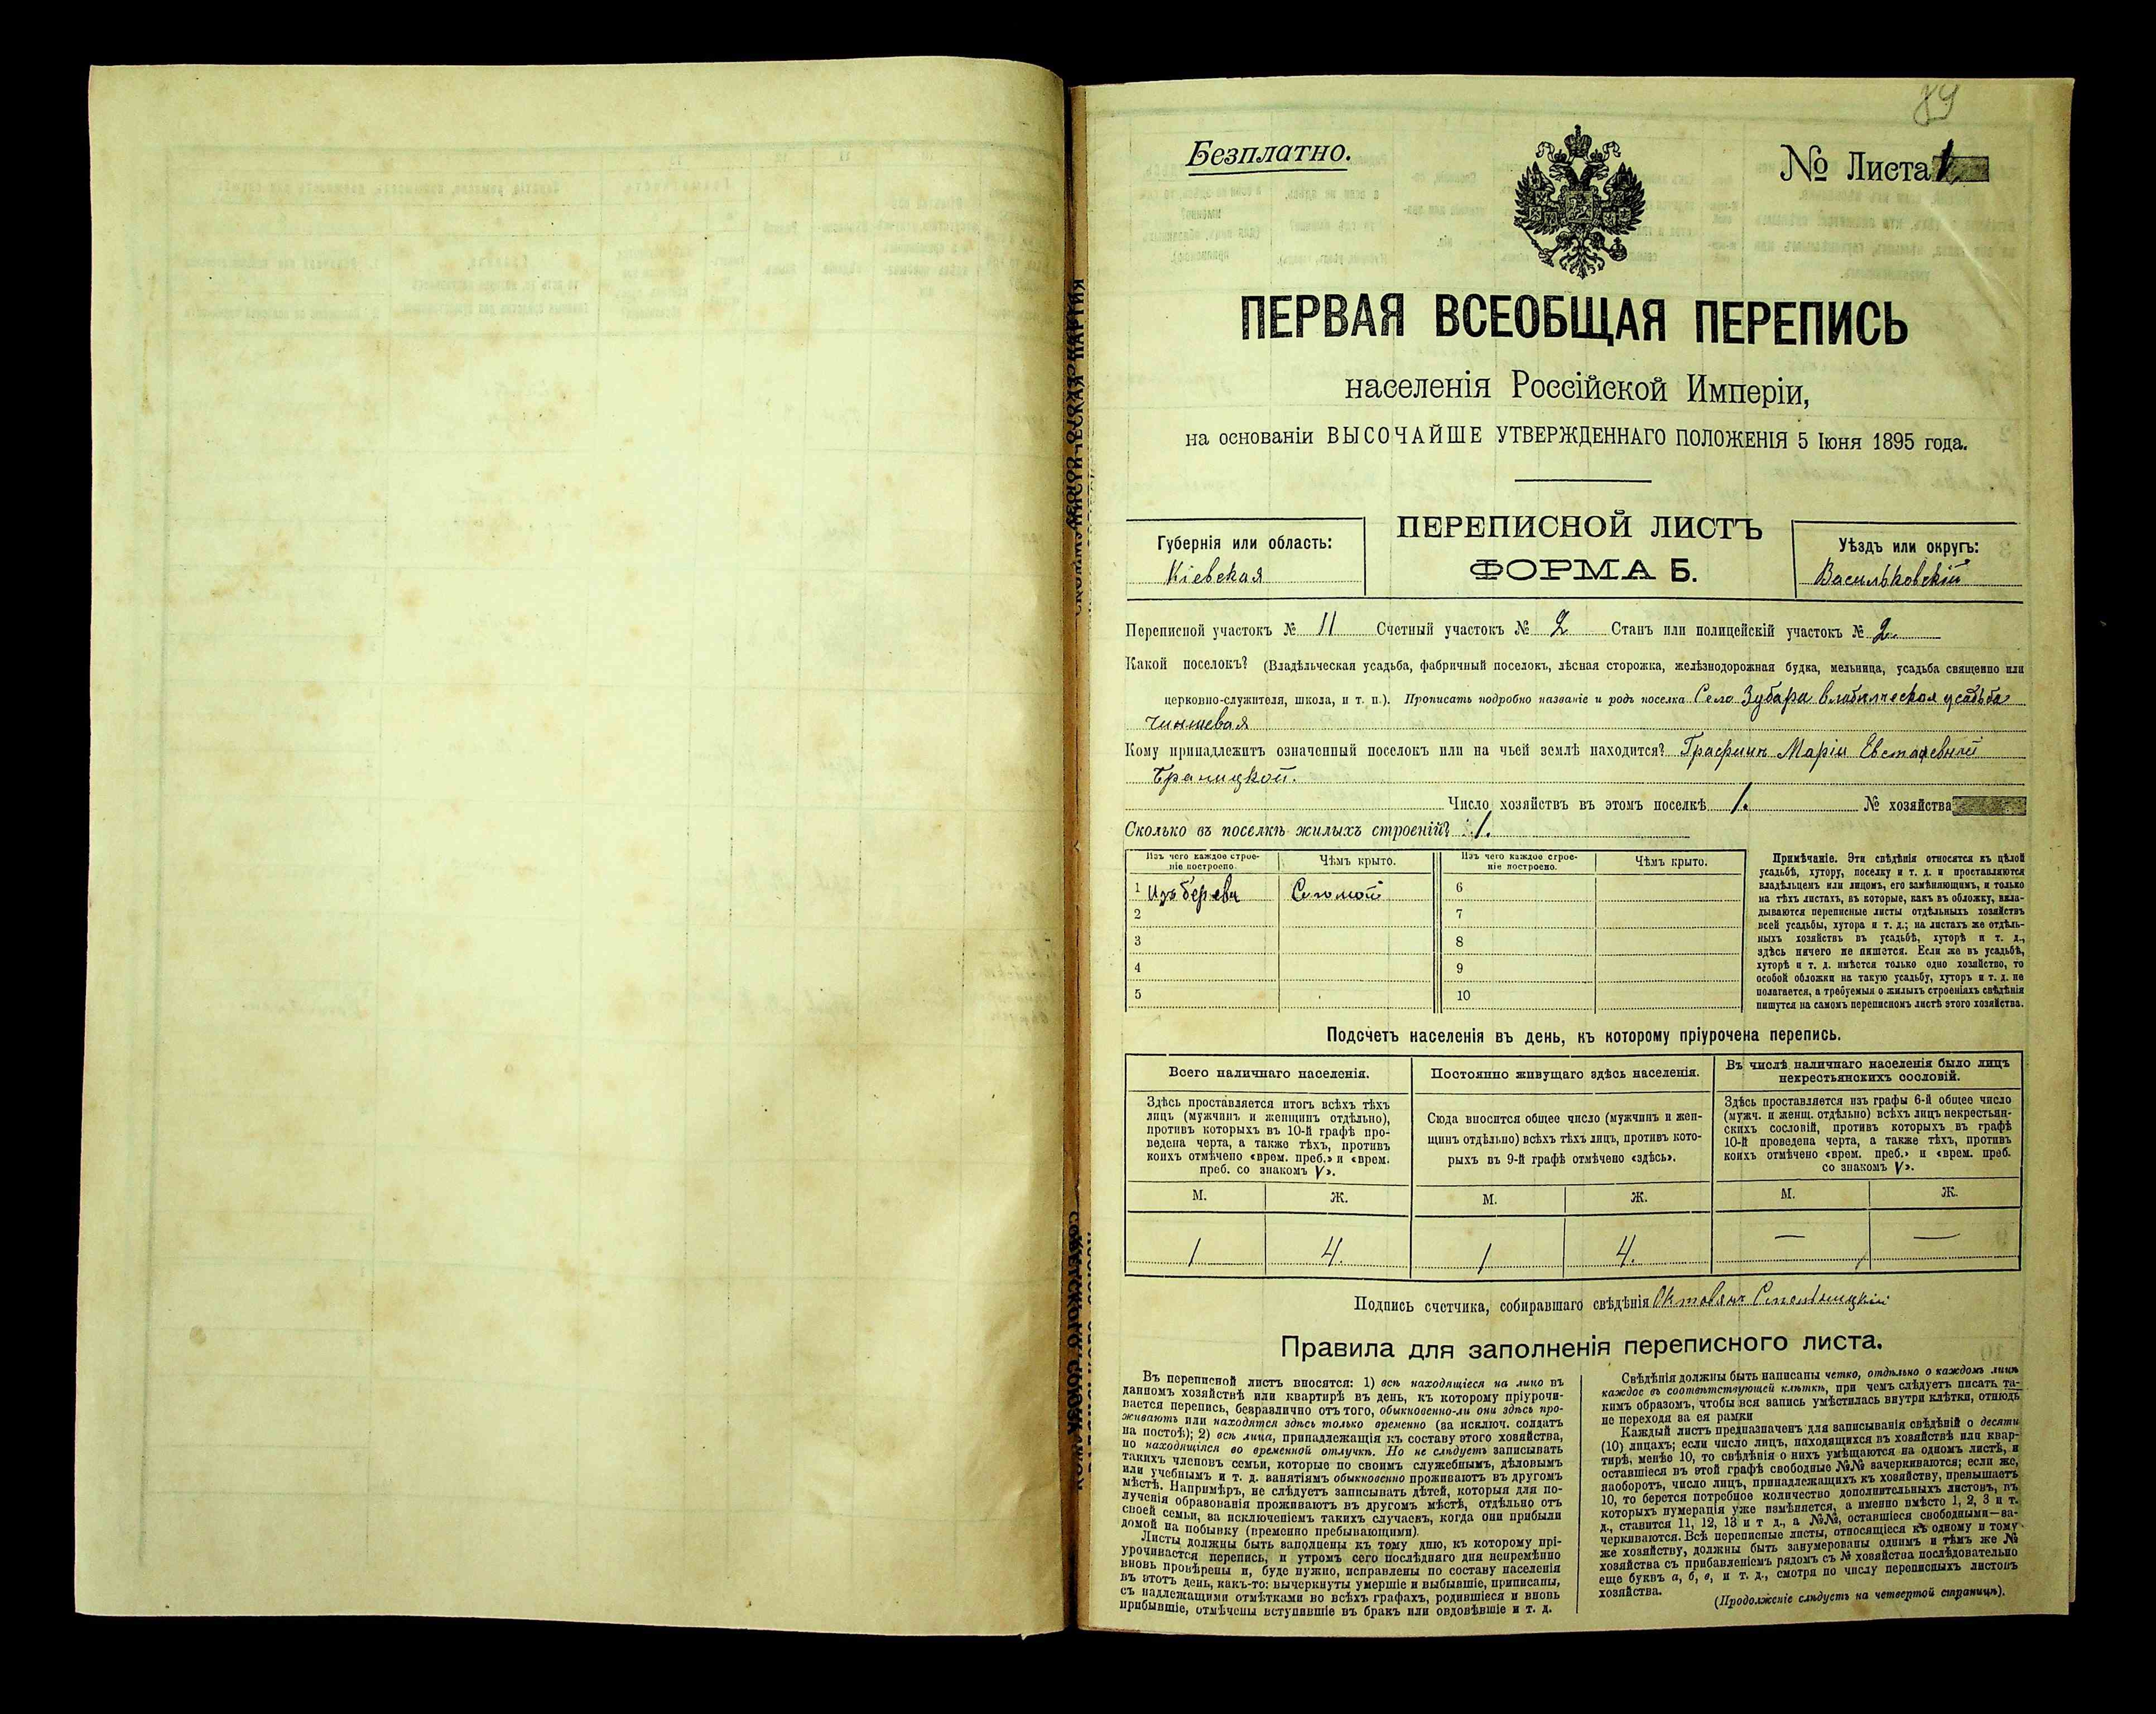 89
Безплатно.
№ Листа 1
ПЕРВАЯ ВСЕОБЩАЯ ПЕРЕПИСЬ
населенія Россійской Имперіи,
на основаніи ВЫСОЧАЙШЕ УТВЕРЖДЕННАГО ПОЛОЖЕНІЯ 5 Іюня 1895 года.
Губернія или область:
Кіевская
ПЕРЕПИСНОЙ ЛИСТЪ
ФОРМА Б.
Уѣздъ или округъ:
Васильковскій
Переписной участокъ № 11 Счетный участокъ № 2 Станъ или полицейскій участокъ № 2
Какой поселокъ? (Владѣльческая усадьба, фабричный поселокъ, лѣсная сторожка, желѣзнодорожная будка, мельница, усадьба священно или
церковно-служителя, школа, и т. п.). Прописать подробно названіе и родъ поселка Село Зубари владѣльческая усадьба
чиншевая
Кому принадлежитъ означенный поселокъ или на чьей землѣ находится? Графинѣ Маріи Евстафевной
Браницкой.
Число хозяйствъ въ этомъ поселкѣ 1. № хозяйства
Сколько въ поселкѣ жилыхъ строеній? 1.
Изъ чего каждое строе-
ніе построено.
Чѣмъ крыто.
Изъ чего каждое строе-
ніе построено.
Чѣмъ крыто.
1 Изъ дерева Соломой 6
2 7
3 8
4 9
5 10
Примѣчаніе. Эти свѣдѣнія относятся къ цѣлой
усадьбѣ, хутору, поселку и т. д. и проставляются
владѣльцемъ или лицомъ, его замѣняющимъ, и только
на тѣхъ листахъ, въ которые, какъ въ обложку, вкла-
дываются переписные листы отдѣльныхъ хозяйствъ
всей усадьбы, хутора и т. д.; на листахъ же отдѣль-
ныхъ хозяйствъ въ усадьбѣ, хуторѣ и т. д.,
здѣсь ничего не пишется. Если же въ усадьбѣ,
хуторѣ и т. д. имѣется только одно хозяйство, то
особой обложки на такую усадьбу, хуторъ и т. д. не
полагается, а требуемыя о жилыхъ строеніяхъ свѣдѣнія
пишутся на самомъ переписномъ листѣ этого хозяйства.
Подсчетъ населенія въ день, къ которому пріурочена перепись.
Всего наличнаго населенія.
Здѣсь проставляется итогъ всѣхъ тѣхъ
лицъ (мужчинъ и женщинъ отдѣльно),
противъ которыхъ въ 10-й графѣ про-
ведена черта, а также тѣхъ, противъ
коихъ отмѣчено «врем. преб.» и «врем.
преб. со знакомъ V».
Постоянно живущаго здѣсь населенія.
Сюда вносится общее число (мужчинъ и жен-
щинъ отдѣльно) всѣхъ тѣхъ лицъ, противъ кото-
рыхъ въ 9-й графѣ отмѣчено «здѣсь».
Въ числѣ наличнаго населенія было лицъ
некрестьянскихъ сословій.
Здѣсь проставляется изъ графы 6-й общее число
(мужч. и женщ. отдѣльно) всѣхъ лицъ некрестьян-
скихъ сословій, противъ которыхъ въ графѣ
10-й проведена черта, а также тѣхъ, противъ
коихъ отмѣчено «врем. преб.» и «врем. преб.
со знакомъ V».
М. Ж. М. Ж. М. Ж.
1 4. 1 4. — —
Подпись счетчика, собиравшаго свѣдѣнія
Правила для заполненія переписного листа.
Въ переписной листъ вносятся: 1) всѣ находящіеся на лицо въ
данномъ хозяйствѣ или квартирѣ въ день, къ которому пріурочи-
вается перепись, безразлично отъ того, обыкновенно-ли они здѣсь про-
живаютъ или находятся здѣсь только временно (за исключ. солдатъ
на постоѣ); 2) всѣ лица, принадлежащія къ составу этого хозяйства,
но находящіяся во временной отлучкѣ. Но не слѣдуетъ записывать
такихъ членовъ семьи, которые по своимъ служебнымъ, дѣловымъ
или учебнымъ и т. д. занятіямъ обыкновенно проживаютъ въ другомъ
мѣстѣ. Напримѣръ, не слѣдуетъ записывать дѣтей, которыя для по-
лученія образованія проживаютъ въ другомъ мѣстѣ, отдѣльно отъ
своей семьи, за исключеніемъ такихъ случаевъ, когда они прибыли
домой на побывку (временно пребывающими).
Листы должны быть заполнены къ тому дню, къ которому прі-
урочивается перепись, и утромъ сего послѣдняго дня непремѣнно
вновь провѣрены и, буде нужно, исправлены по составу населенія
въ этотъ день, какъ-то: вычеркнуты умершіе и выбывшіе, приписаны,
съ надлежащими отмѣтками во всѣхъ графахъ, родившіеся и вновь
прибывшіе, отмѣчены вступившіе въ бракъ или овдовѣвшіе и т. д.
Свѣдѣнія должны быть написаны четко, отдѣльно о каждомъ лицѣ
каждое въ соотвѣтствующей клѣткѣ, при чемъ слѣдуетъ писать та-
кимъ образомъ, чтобы вся запись умѣстилась внутри клѣтки, отнюдь
не переходя за ея рамки
Каждый листъ предназначенъ для записыванія свѣдѣній о десяти
(10) лицахъ; если число лицъ, находящихся въ хозяйствѣ или квар-
тирѣ, менѣе 10, то свѣдѣнія о нихъ умѣщаются на одномъ листѣ, и
оставшіеся въ этой графѣ свободные №№ зачеркиваются; если же,
наоборотъ, число лицъ, принадлежащихъ къ хозяйству, превышаетъ
10, то берется потребное количество дополнительныхъ листовъ, въ
которыхъ нумерація уже измѣняется, а именно вмѣсто 1, 2, 3 и т.
д., ставится 11, 12, 13 и т д., а №№, оставшіеся свободными—за-
черкиваются. Всѣ переписные листы, относящіеся къ одному и тому
же хозяйству, должны быть занумерованы однимъ и тѣмъ же №
хозяйства съ прибавленіемъ рядомъ съ № хозяйства послѣдовательно
еще буквъ а, б, в, и т. д., смотря по числу переписныхъ листовъ
хозяйства.
(Продолженіе слѣдуетъ на четвертой страницѣ).